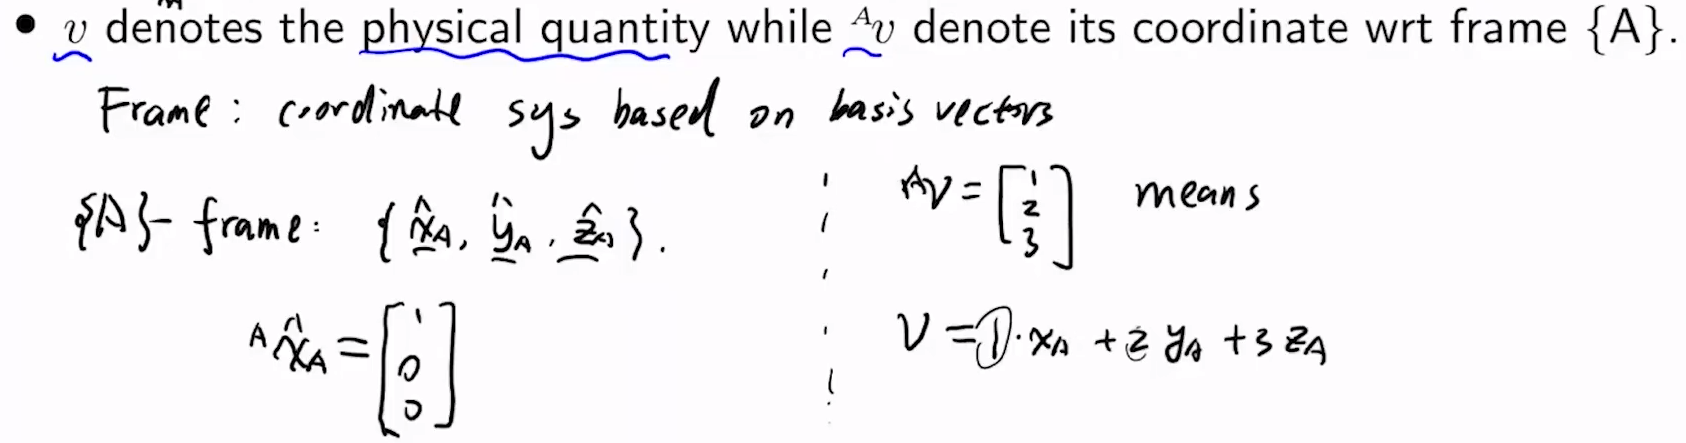 • v denotes the physical quantity while ᴬv denote its coordinate wrt frame {A}.
Frame: coordinate sys based on basis vectors
{A}- frame: { x̂_A, ŷ_A, ẑ_A }.
ᴬx̂_A = [1 0 0]
ᴬv = [1 2 3] means
v = 1·x_A + 2 y_A + 3 z_A